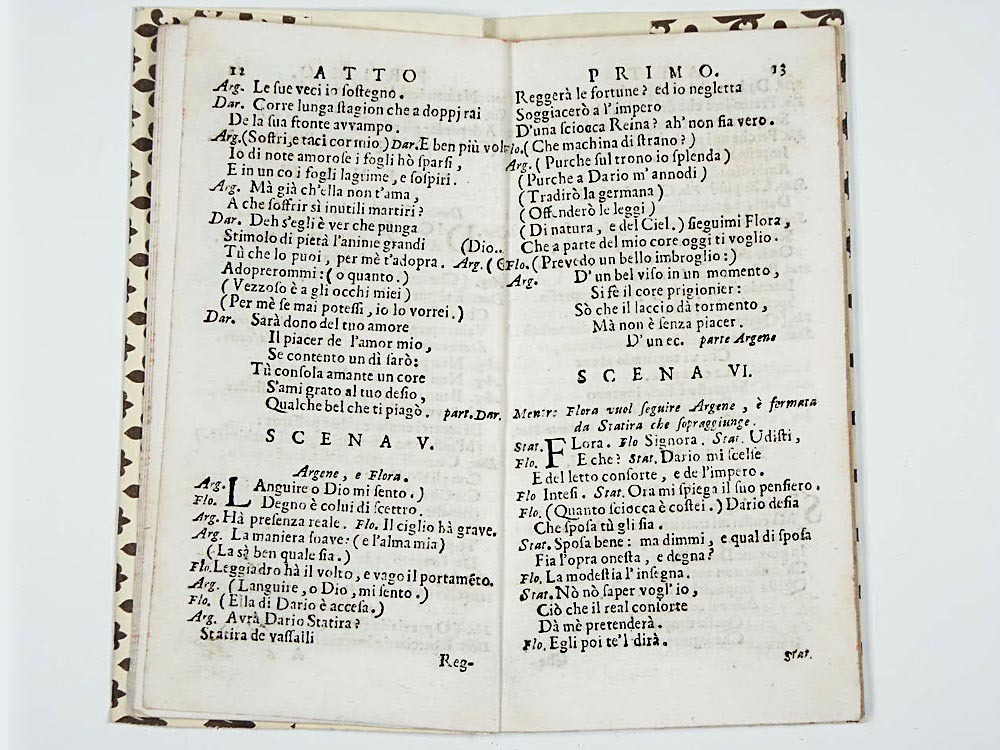 12 ATTO
Arg. Le sue veci io sostegno.
Dar. Corre lunga stagion che a doppj rai
De la sua fronte avvampo.
Arg. (Soffri, e taci cor mio) Dar. E ben più volt
Io di note amorose i fogli hò sparsi,
E in un co i fogli lagrime, e sospiri.
Arg. Mà già ch'ella non t'ama,
A che soffrir sì inutili martiri?
Dar. Deh s'egli è ver che punga
Stimolo di pietà l'anime grandi (Dio..
Tù che lo puoi, per mè t'adopra. Arg. (
Adoprerommi: (o quanto.)
(Vezzoso è a gli occhi miei)
(Per mè se mai potessi, io lo vorrei.)
Dar. Sarà dono del tuo amore
Il piacer de l'amor mio,
Se contento un dì sarò:
Tù consola amante un core
S'ami grato al tuo desio,
Qualche bel che ti piagò. part. Dar.
SCENA V.
Argene, e Flora.
Arg. LAnguire o Dio mi sento.)
Flo. Degno è colui di scettro.
Arg. Hà presenza reale. Flo. Il ciglio hà grave.
Arg. La maniera soave: (e l'alma mia)
(La sà ben quale sia.)
Flo. Leggiadro hà il volto, e vago il portamẽto.
Arg. (Languire, o Dio, mi sento.)
Flo. (Ella di Dario è accesa.)
Arg. Avrà Dario Statira?
Statira de vassalli
Reg-
PRIMO. 13
Reggerà le fortune? ed io negletta
Soggiacerò a l'impero
D'una sciocca Reina? ah' non sia vero.
Flo. (Che machina di strano?)
Arg. (Purche sul trono io splenda)
(Purche a Dario m'annodi)
(Tradirò la germana)
(Offenderò le leggi)
(Di natura, e del Ciel.) sieguimi Flora,
Che a parte del mio core oggi ti voglio.
Flo. (Prevedo un bello imbroglio:)
Arg. D'un bel viso in un momento,
Si fè il core prigionier:
Sò che il laccio dà tormento,
Mà non è senza piacer.
D'un ec. parte Argene
SCENA VI.
Mentr: Flora vuol seguire Argene, è fermata
da Statira che sopraggiunge.
Stat. FLora. Flo Signora. Stat. Udisti,
Flo. E che? Stat. Dario mi scelse
E del letto consorte, e de l'impero.
Flo Intesi. Stat. Ora mi spiega il suo pensiero.
Flo. (Quanto sciocca è costei.) Dario desia
Che sposa tù gli sia.
Stat. Sposa bene: ma dimmi, e qual di sposa
Fia l'opra onesta, e degna?
Flo. La modestia l'insegna.
Stat. Nò nò saper vogl'io,
Ciò che il real consorte
Da mè pretenderà.
Flo. Egli poi te'l dirà.
Stat.